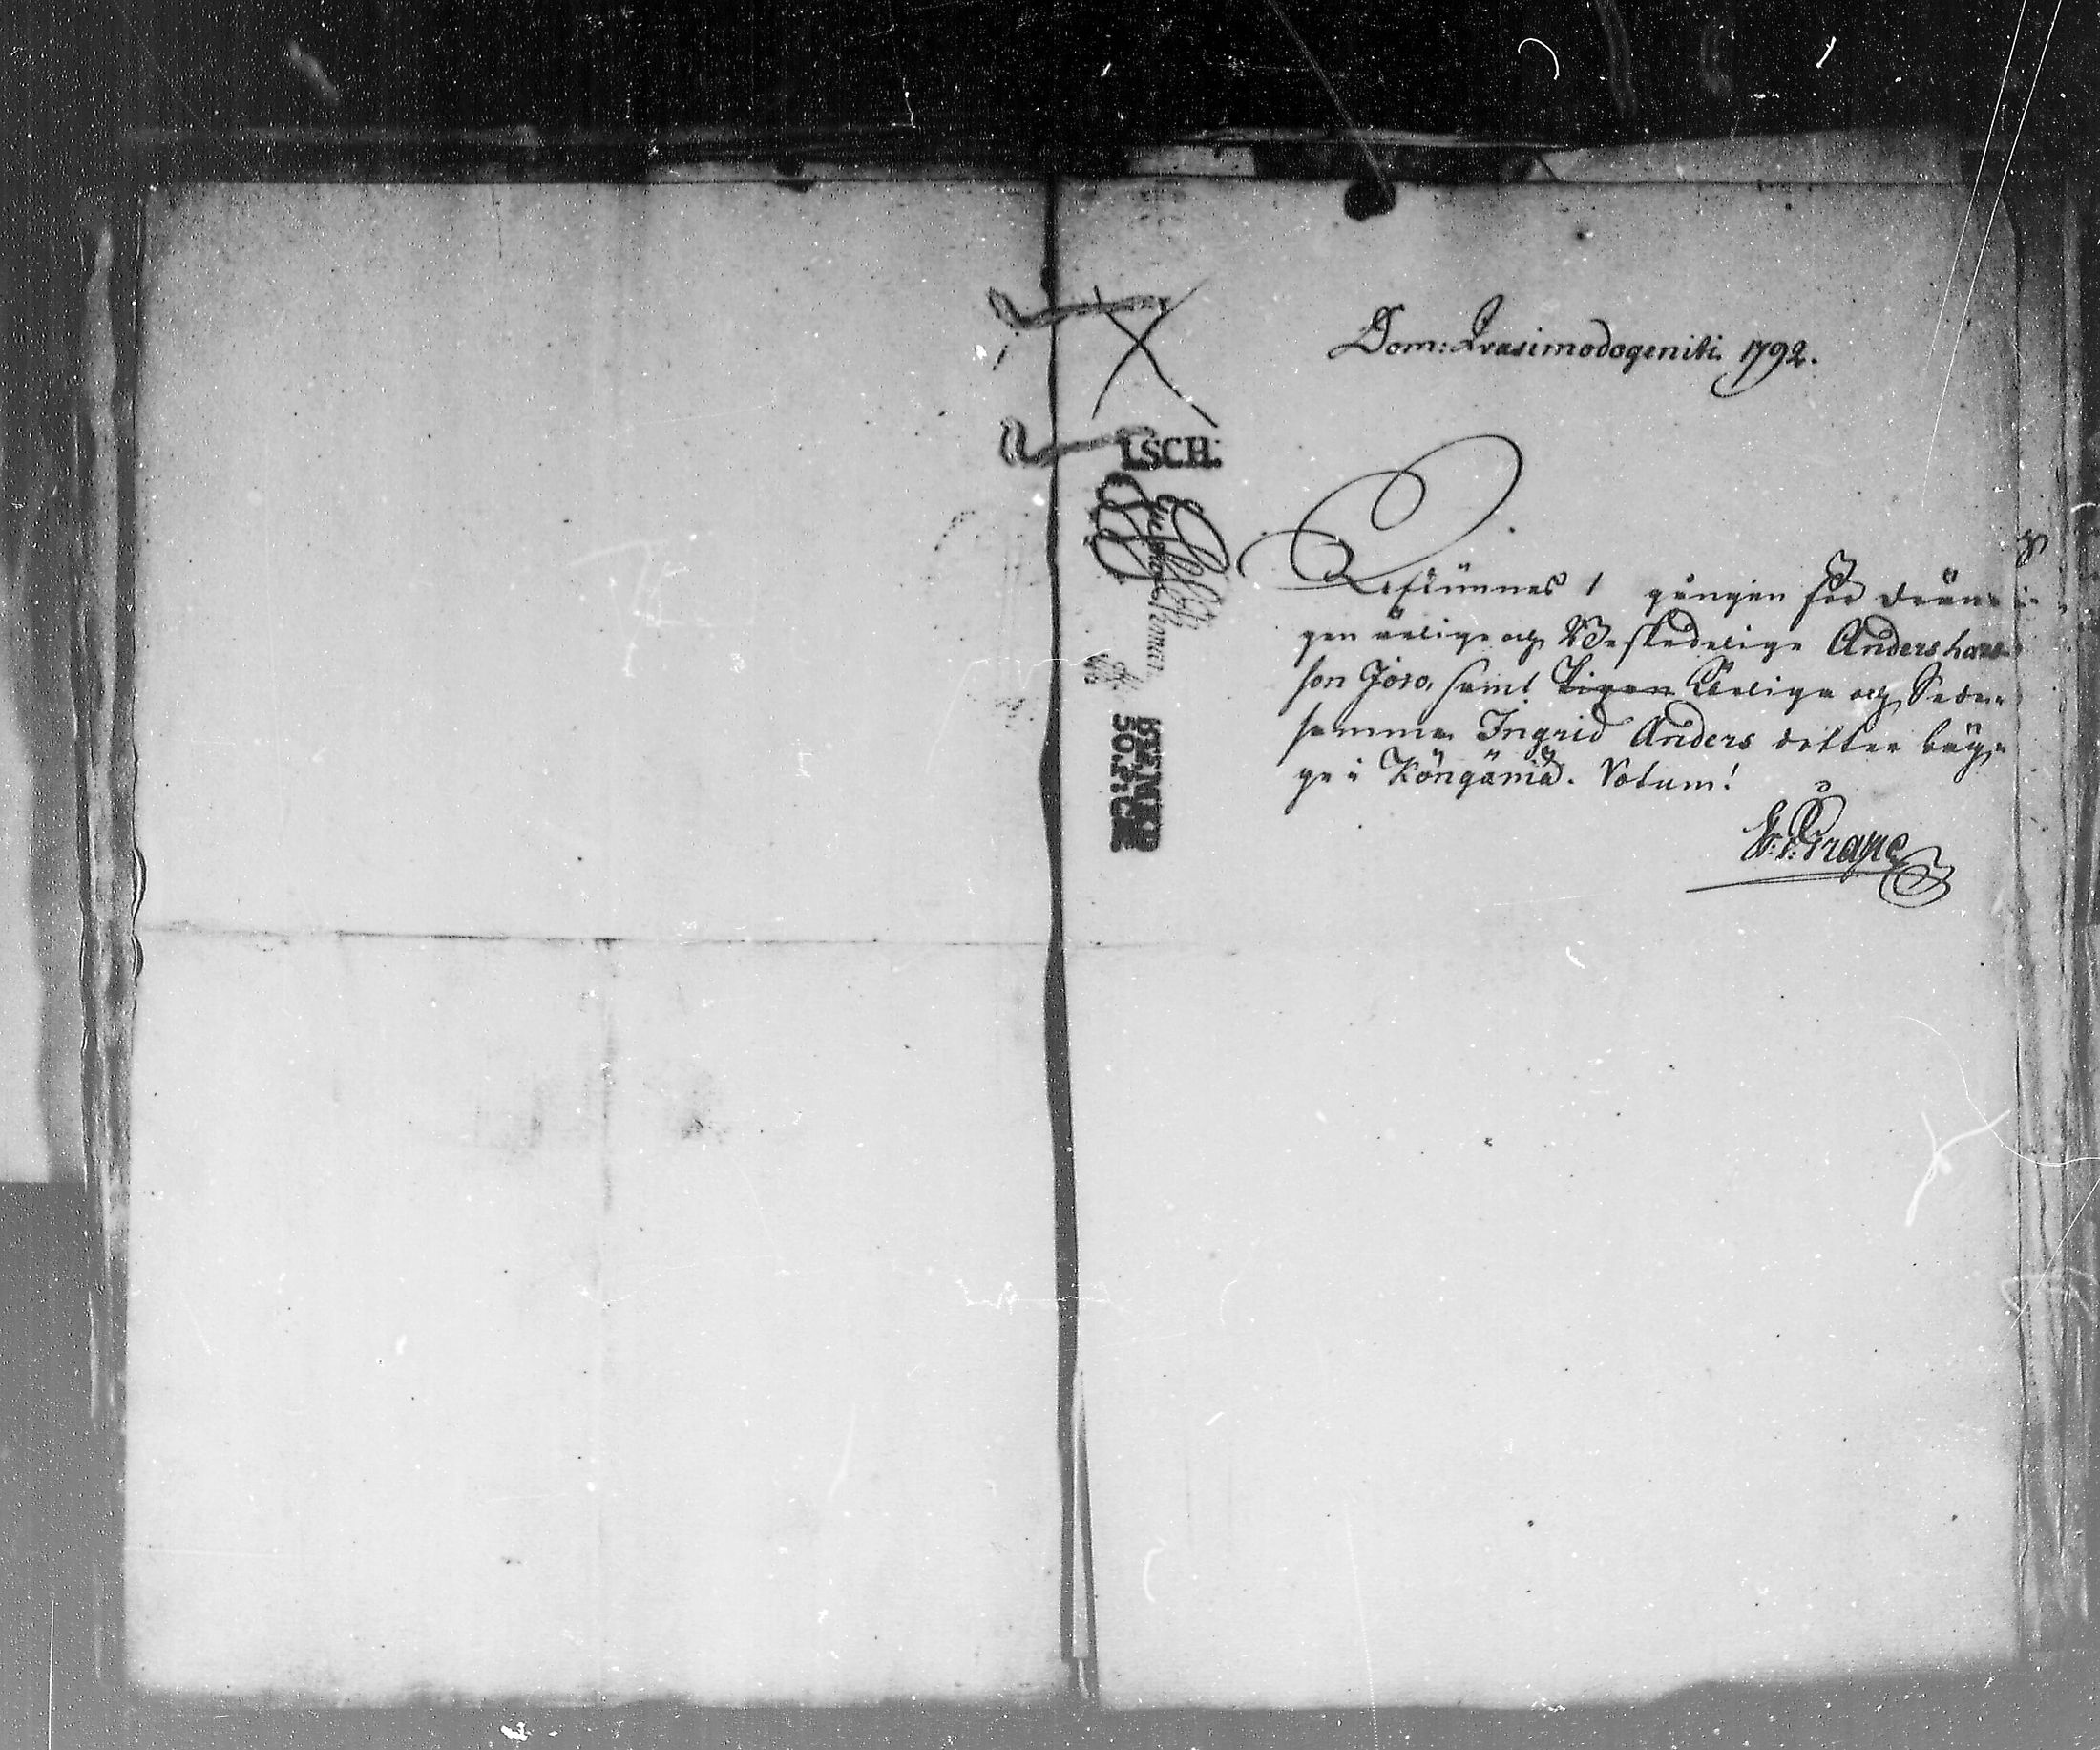 Dom: Qvasimodogeniti 1792.
Afkunnes 1 gången för drän-
gen ärlige och Beskedelige Anders Lars-
son Joso, samt Pigan Ärliga och Sede-
samma Ingrid Anders dotter bäg-
ge i Köngämä. Votum!
LSCH.